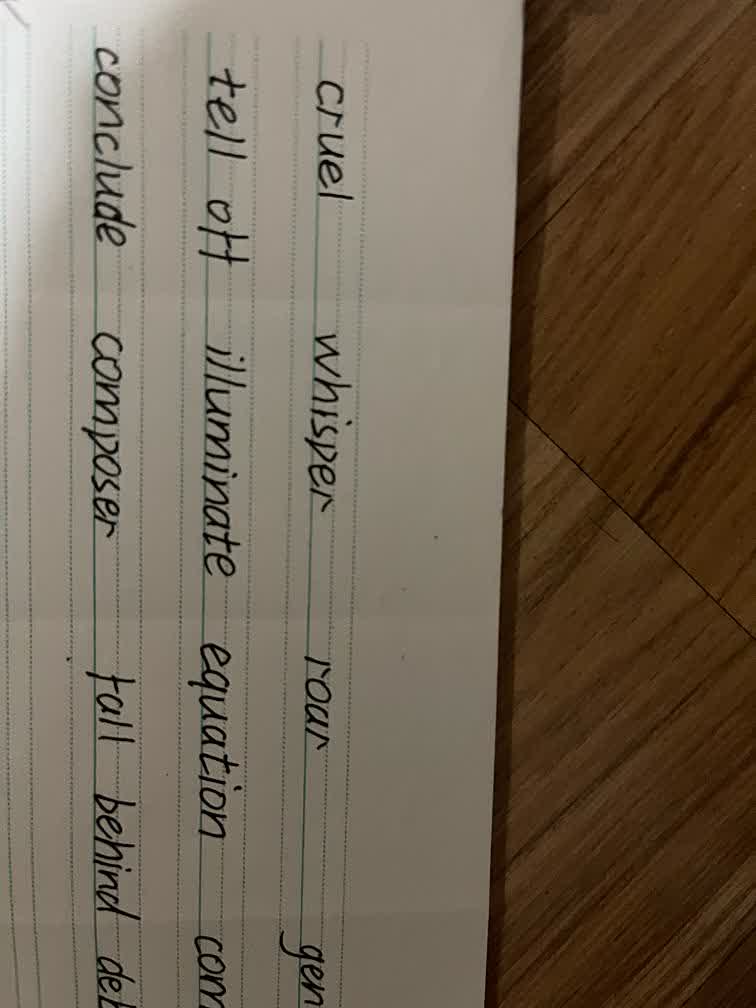 cruel whisper roar gen
tell off illuminate equation com
conclude composer fall behind deb